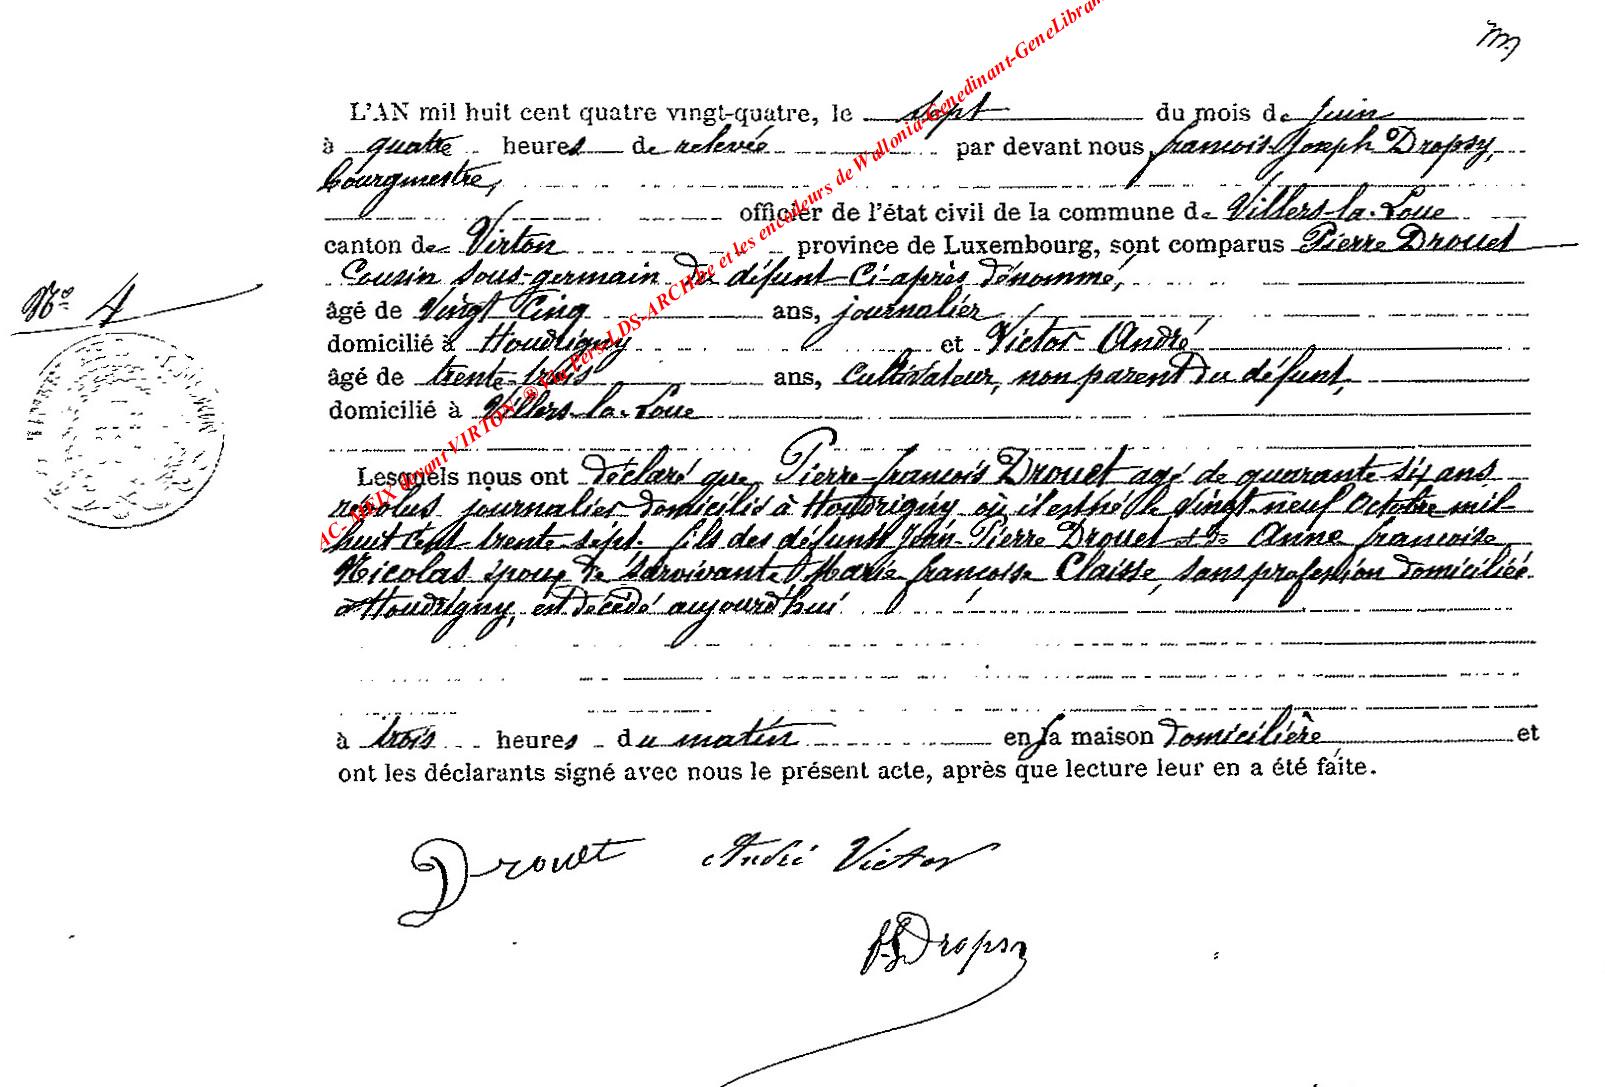 L'AN mil huit cent quatre vingt-quatre, le sept du mois de juin
à quatre heures de relevée par devant nous, françois Joseph Dropsy,
bourgmestre,
officier de l'état civil de la commune de Villers-la-Loue
canton de Virton province de Luxembourg, sont comparus Pierre Drouet
Cousin sous-germain du défunt ci-après dénommé,
âgé de Vingt Cinq ans, journalier
domicilié à Houdrigny et Victor André
âgé de trente-trois ans, cultivateur, non parent du défunt,
domicilié à Villers-la-Loue
Nº 4
Lesquels nous ont déclaré que Pierre-françois Drouet agé de quarante six ans
révolus journalier domicilié à Houdrigny où il est né le vingt neuf Octobre mil
huit cent trente-sept. fils des défunts Jean-Pierre Drouet et de Anne françoise
Nicolas époux de survivante Marie françoise Claisse, sans profession domiciliée
à Houdrigny, est décédé aujourd'hui
à trois heures du matin en sa maison domicilière, et
ont les déclarants signé avec nous le présent acte, après que lecture leur en a été faite.
Drouet André Victor
fJDropsy
AC- MEIX devant VIRTON ® Via Pers-LDS-ARCH.be et les encodeurs de Wallonia-Genedinant-GeneLibran